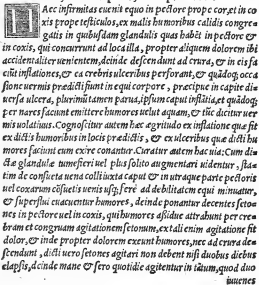 HAec infirmitas euenit equo in pectore prope cor, et in co
xis prope testiculos, ex malis humoribus calidis congre-
gatis in quibusdam glandulis quas habit in pectore &
in coxis, qui concurrunt ad loca illa, propter aliquem dolorem ibi
accidentaliter uenientem, deinde descendunt ad crura, & in eis fa
ciūt inflationes, & ea crebris ulceribus perforant, & quādoq; occa
sione uermis prædicti fiunt in equi corpore, præcipue in capite di-
uersa ulcera, plurimū tamen parua, ipsum caput inflātia, et quādoq;
per nares faciunt emittere humores uelut aquam, & tūc dicitur uer
mis uolatiuus. Cognoscitur autem hæc ægritudo ex inflatione quæ fit
ex dictis humoribus in locis prædictis, & ex ulceribus quæ dicti hu
mores faciunt cum exire conantur. Curatur autem hac uia: Cum di-
ctæ glandulæ tumefieri uel plus solito augmentari uidentur, sta-
tim de consueta uena colli iuxta caput & in utraque parte pectoris
uel coxarum cōsuetis uenis usq; ferè ad debilitatem equi minuatur,
& superflui euacuentur humores, deinde ponantur decentes seto-
nes in pectore uel in coxis, qui humores aßidue attrahunt per cre-
bram et congruam agitationem setonum, ex tali enim agitatione fit
dolor, & inde propter dolorem exeunt humores, nec ad crura de-
scendunt, dicti uero setones agitari non debent nisi duobus diebus
elapsis, deinde mane & sero quotidie agitentur in tātum, quod duo
iuuenes